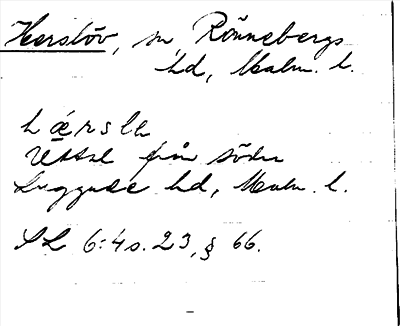 Herslöv, sn, Rönnebergs
hd, Malm. l.
hǽrslη
Uttal från södra
Luggude hd, Malm. l.
SL 6:4 s. 23, § 66.